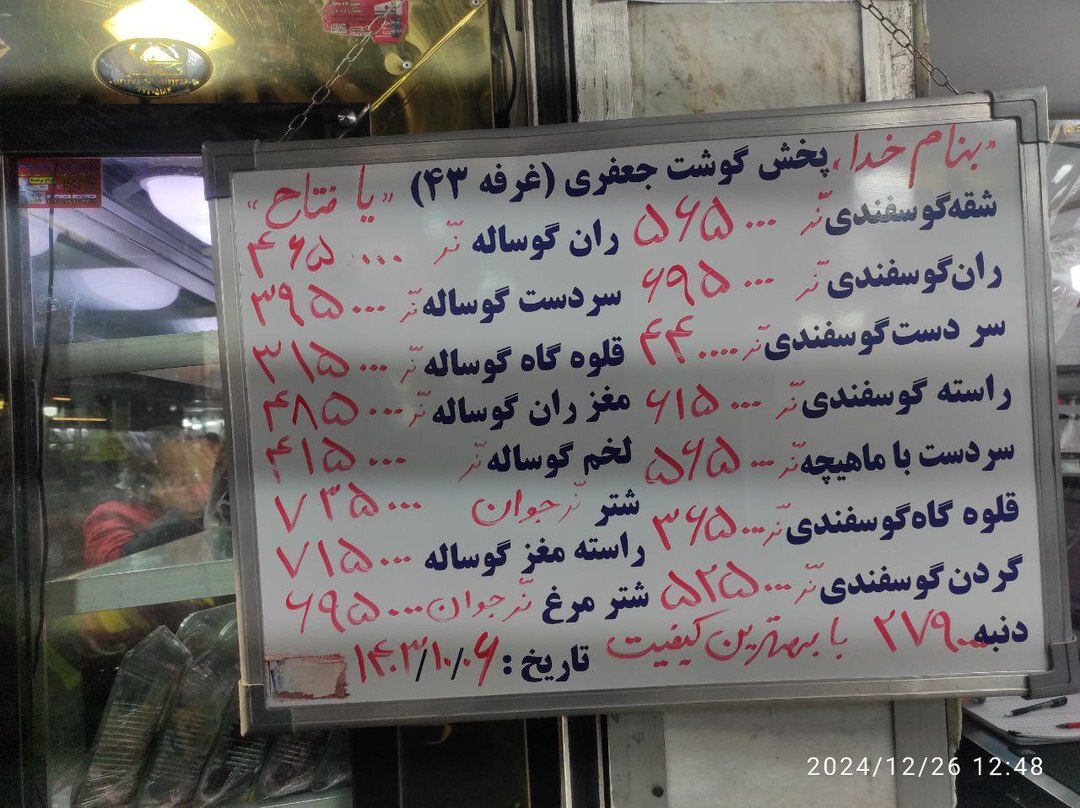 «بنام خدا» پخش گوشت جعفری (غرفه ۴۳) «یا فتاح»
شقه گوسفندی نر ۵۶۵۰۰۰
ران گوسفندی نر ۶۹۵۰۰۰
سر دست گوسفندی نر ۴۴۰۰۰۰
راسته گوسفندی نر ۶۱۵۰۰۰
سردست با ماهیچه نر ۵۶۵۰۰۰
قلوه گاه گوسفندی نر ۳۶۵۰۰۰
گردن گوسفندی نر ۵۲۵۰۰۰
دنبه ۲۷۹۰۰۰ با بهترین کیفیت
ران گوساله نر ۴۶۵۰۰۰
سردست گوساله نر ۳۹۵۰۰۰
قلوه گاه گوساله نر ۳۱۵۰۰۰
مغز ران گوساله نر ۴۸۵۰۰۰
لخم گوساله نر ۴۱۵۰۰۰
شتر نر جوان ۷۳۵۰۰۰
راسته مغز گوساله ۷۱۵۰۰۰
شتر مرغ نر جوان ۶۹۵۰۰۰
تاریخ : ۱۴۰۳/۱۰/۰۶
2024/12/26 12:48